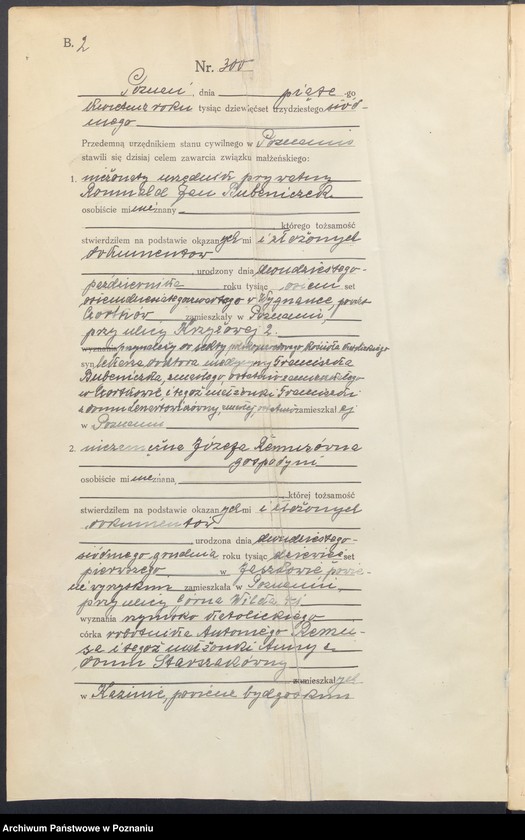 B. 2
Nr. 300
Poznań, dnia piąte-go
kwietnia roku tysiąc dziewięćset trzydziestego siód-
mego
Przedemną urzędnikiem stanu cywilnego w Poznaniu
stawili się dzisiaj celem zawarcia związku małżeńskiego:
1. nieżonaty urzędnik prywatny
Romuald Jan Rubeniczek
osobiście mi nieznany
którego tożsamość
stwierdziłem na podstawie okazanych mi i złożonych
dokumentów
urodzony dnia dwudziestego-
października roku tysiąc osiem set
osiemdziesiątego czwartego w Wygnance, powiat
Czortków, zamieszkały w Poznaniu,
przy ulicy Krzyżowej 2.
wyznania przynależny do sekty Kościoła Katolickiego
syn lekarza doktora medycyny Franciszka
Rubeniczka, zmarłego, ostatnio zamieszkałego
w Czortkowie, i tegoż małżonki Franciszki
z domu zmarłej, ostatnio zamieszkałej
w Poznaniu
2. niezamężna Józefa Remuzówna
gospodyni
osobiście mi nieznana
której tożsamość
stwierdziłem na podstawie okazanych mi i złożonych
dokumentów
urodzona dnia dwudziestego-
siódmego grudnia roku tysiąc dziewięć set
pierwszego w powie-
cie wyrzyskim zamieszkała w Poznaniu,
przy ulicy Górna Wilda
wyznania rzymsko katolickiego
córka robotnika Antoniego Remu-
za i tegoż małżonki Anny z
domu Starszakówny
zamieszkałych
w Kazinie, powiecie bydgoskim
Archiwum Państwowe w Poznaniu